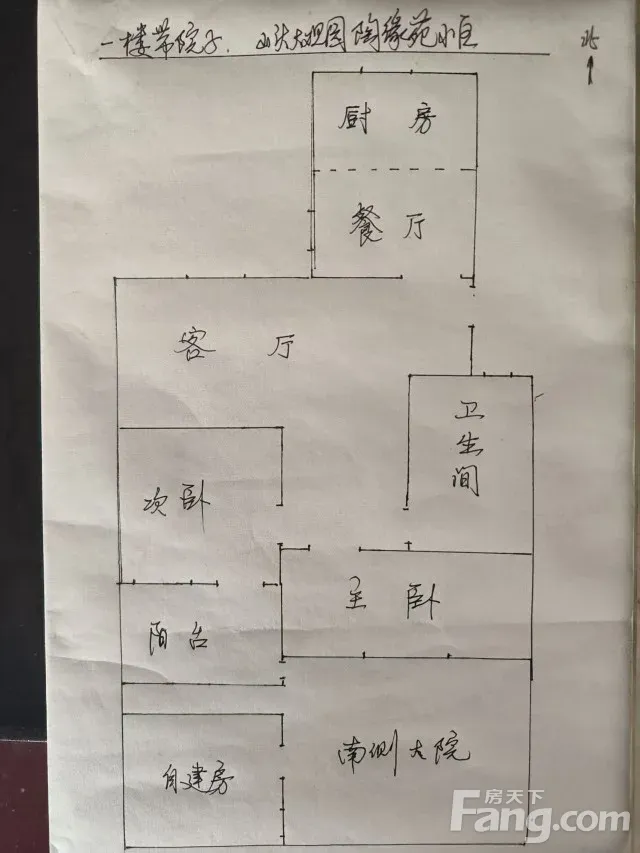 一楼带院子. 山头大观园陶缘苑小区
北
厨 房
餐 厅
客 厅
卫生间
次卧
主 卧
阳台
南侧大院
自建房
房天下
Fang.com